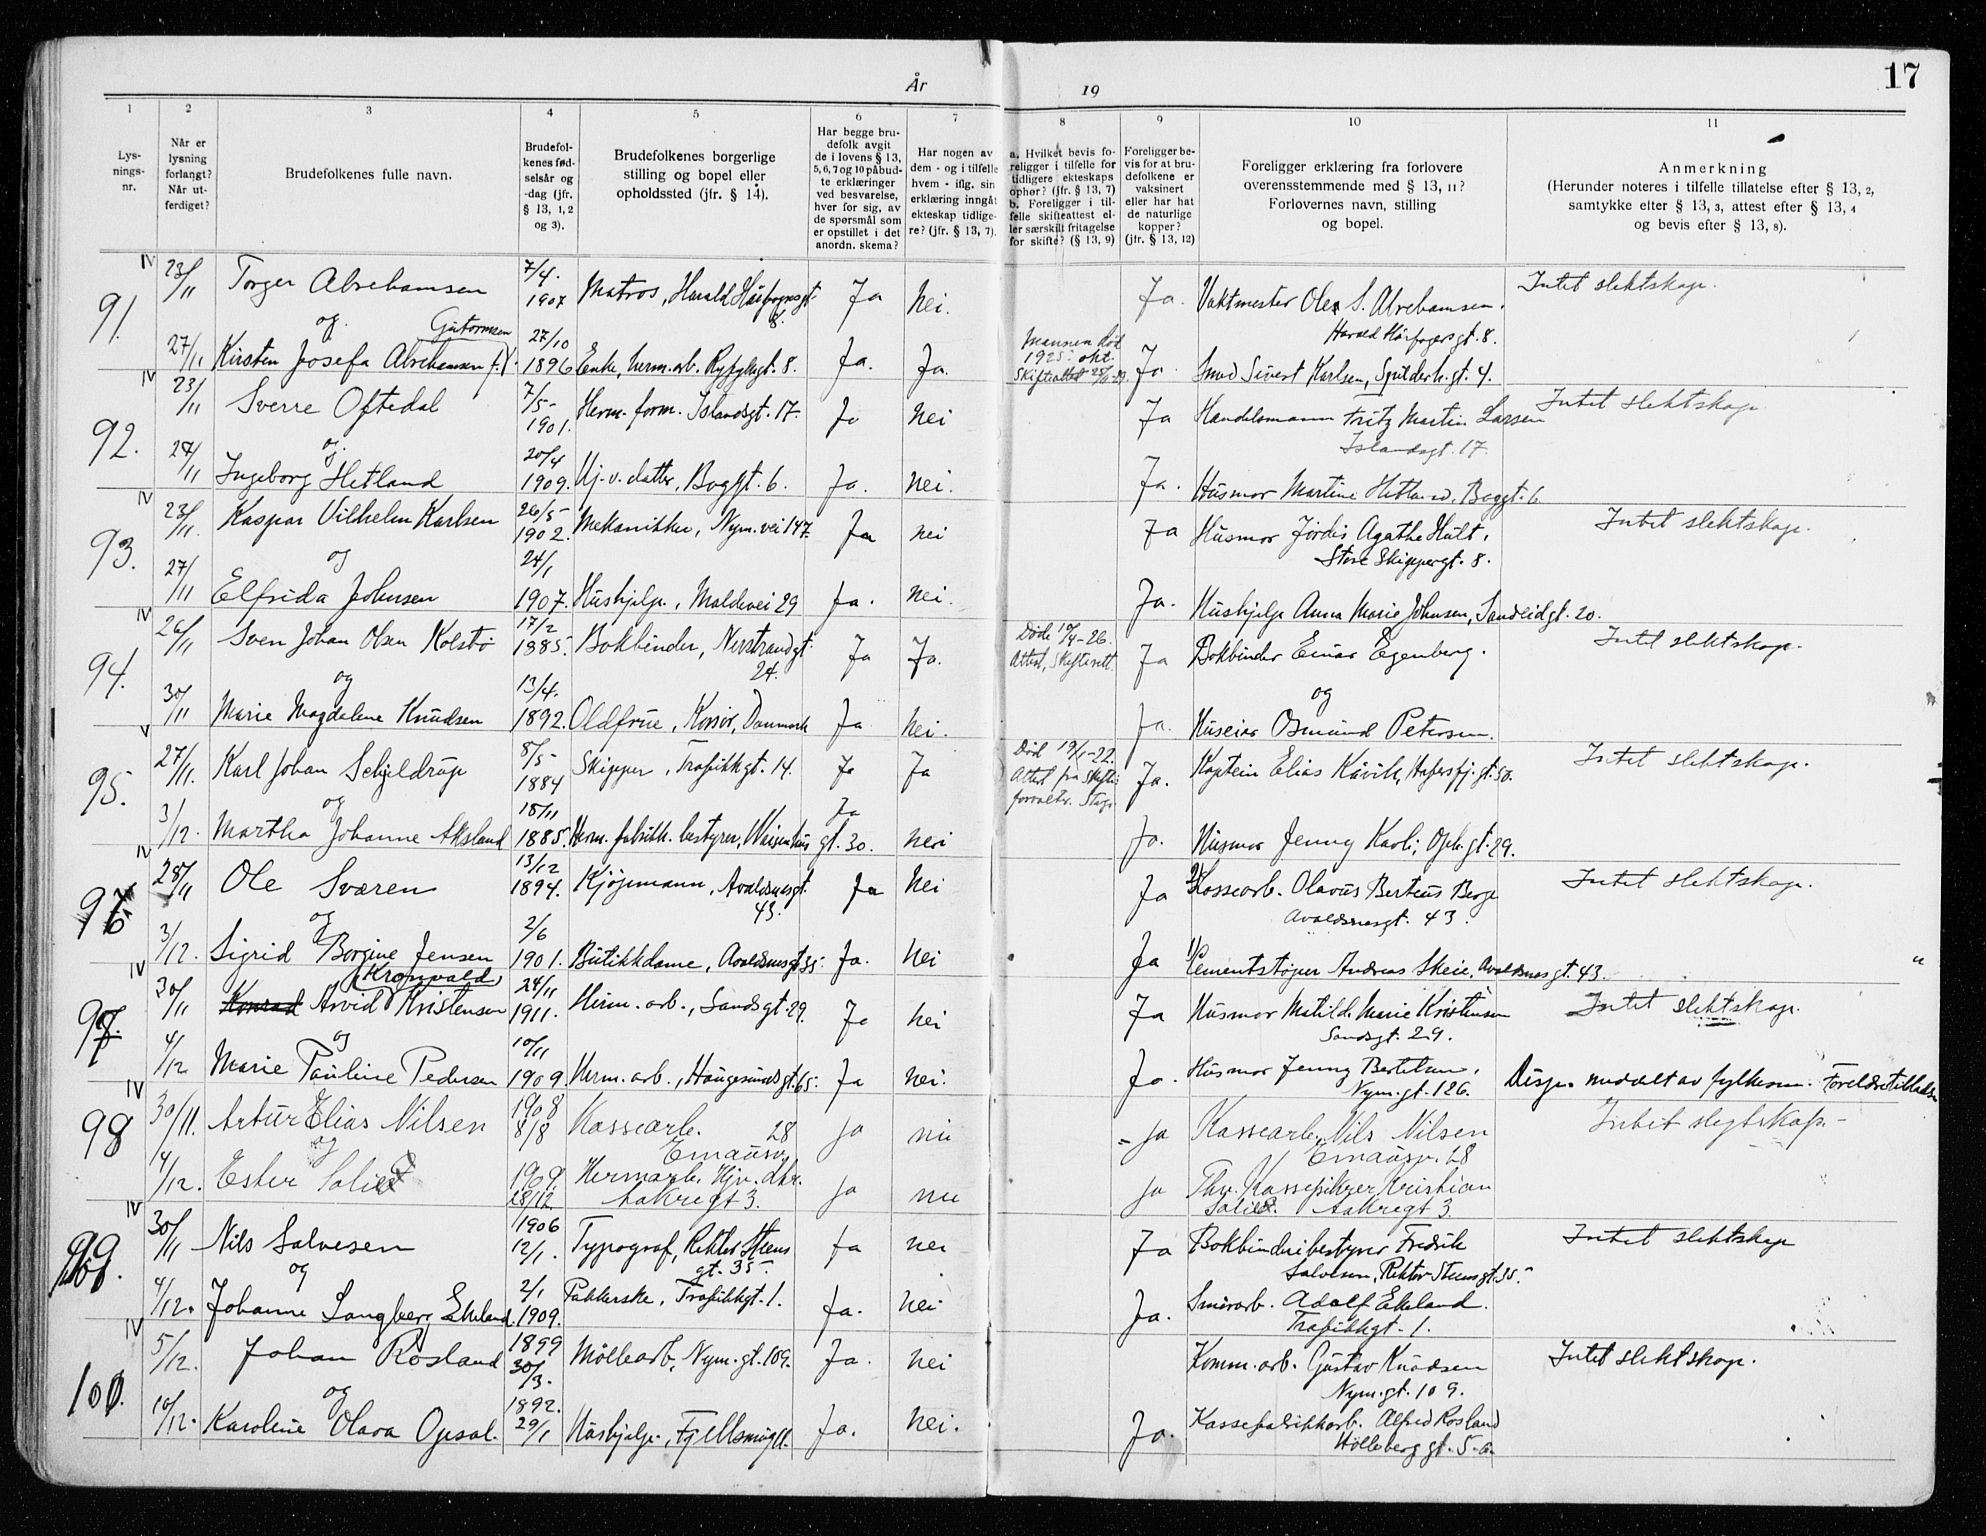 År
19
17
1
2
3
4
5
6
7
8
9
10
11
Lys-
nings-
nr.
Når er
lysning
forlangt?
Når ut-
ferdiget?
Brudefolkenes fulle navn.
Brudefol-
kenes fød-
selsår og
-dag (jfr.
§ 13, 1, 2
og 3).
Brudefolkenes borgerlige
stilling og bopel eller
opholdssted (jfr. § 14).
Har begge bru-
defolk avgit
de i lovens § 13,
5, 6, 7 og 10 påbud-
te erklæringer
ved besvarelse,
hver for sig, av
de spørsmål som
er opstillet i det
anordn. skema?
Har nogen av
dem - og i tilfelle
hvem - iflg. sin
erklæring inngåt
ekteskap tidlige-
re? (jfr. § 13, 7).
a. Hvilket bevis fo-
religger i tilfelle for
tidligere ekteskaps
ophør? (jfr. § 13, 7)
b. Foreligger i til-
felle skifteattest el-
ler særskilt fritagelse
for skifte? (§ 13, 9)
Foreligger be-
vis for at bru-
defolkene er
vaksinert
eller har hat
de naturlige
kopper?
(jfr. § 13, 12)
Foreligger erklæring fra forlovere
overensstemmende med § 13, 11?
Forlovernes navn, stilling
og bopel.
Anmerkning
(Herunder noteres i tilfelle tillatelse efter § 13, 2,
samtykke efter § 13, 3, attest efter § 13, 4
og bevis efter § 13, 8).
IV
91.
23/11 Torger Abrahamsen 7/4. 1907 Matros, Harald Hårfagresgt. 8. Ja Nei. Ja. Vaktmester Ole S. Abrahamsen.
Harald Hårfagersgt. 8.
Intet slektskap.
og Gutormsen
27/11 Kirsten Josefa Abrahamsen f. 27/10 1896 Enke, herm. arb. Ryfylkegt. 8. Ja. Ja.
Mannen død
1925. okt.
Skifteattest
Ja Smed Sivert Karlsen, 4.
IV
92.
23/11 Sverre Oftedal 7/5- 1901. Herm. form. Islandsgt. 17. Ja Nei Ja Handelsmann Fritz Martin Larsen
Islandsgt. 17.
Intet slektskap
og
27/11 Ingeborg Hetland 20/4 1909. Hj. v. datter, Boggt. 6. Ja. Nei. Ja. Husmor Martine Hetland, Boggt. 6.
IV
93.
23/11. Kaspar Vilhelm Karlsen 26/5 1902. Mekaniker, Nym. vei 147. Ja Nei Ja Husmor Jordis Agathe Hult,
Store Skippergt. 8.
Intet slektskap.
og
27/11 Elfrida Johnsen 24/1 1907. Hushjelp, Maldevei 29 Ja. Nei. Ja. Hushjelp Anna Marie Johnsen, Sandeidgt. 20.
IV
94.
26/11 Sven Johan Olsen Kolstø 17/2 1885. Bokbinder, Nerstrandgt. 24. Ja Ja.
Døde 10/4-26.
Attest, Skifterett.
Ja Bokbinder Einar Egenberg.
Intet slektskap.
og
og
30/11 Marie Magdalene Knudsen 13/4. 1892. Oldfrue, Korsør, Danmark Ja Nei. Ja. Huseier Osmund Petersen.
V
95.
27/11. Karl Johan Schjeldrup 8/5- 1884 Skipper, Trafikkgt. 14. Ja Ja
Død 19/1-22.
Attest fra Skifte-
forvaltr. Stvgr.
Ja. Kaptein Elias Kåvik, Hafersfj. gt. 50.
Intet slektskap.
og
3/12. Martha Johanne Aksland 18/11 1885. Herm. fabrikk. bestyrer, Waisenhus gt. 30. Ja Nei Ja. Husmor Jenny Karli, Oph. gt. 29.
IV
96
28/11 Ole Sværen 13/12 1894. Kjøpmann, Avaldsnesgt. 43. Ja Nei Ja 2) Kassearb. Olavus Berteus Berge
Avaldsnesgt. 43.
Intet slektskap.
og
3/12. Sigrid Borgine Jensen 2/6 1901. Butikkdame, Avaldsnesgt. 35. Ja. Nei Ja 1) Cementstøper Andreas Skeie, Avaldsnesgt. 43.
IV
97
Kronvald
30/11 Konrad Arvid Kristensen 24/11 1911. Herm. arb., Sandsgt. 29. Ja Nei Ja Husmor Matilde Marie Kristensen
Sandsgt. 29.
Intet slektskap.
og
4/12 Marie Pauline Pedersen 10/11 1909. Herm. arb., Haugesundsgt. 65. Ja Nei. Ja. Husmor Jenny Bertelsen,
Nym. gt. 126.
Disp. meddelt av fylkesm. Foreldretilladelse
IV
98
30/11. Artur Elias Nilsen 1908 8/8 Kassearb. Emausv. 28 Ja nei Ja Kassearb. Nils Nilsen
Emausv. 28
Intet slegtskap.
og
4/12. Ester Salie 1909. 28/12. Hermarb. Hjv. dtr. Aakregt 3. Ja nei Ja Thv. Kassefikser Kristian
Salie. Aakregt 3.
IV
99
30/11 Nils Salvesen 1906 12/1. Typograf, Rektor Steens gt. 35. Ja nei Ja Bokbinderibestyrer Fredrik
Salvesen, Rektor Steensgt. 35.
Intet slektskap
og
4/12. Johanne Langberg Ekeland 2/1 1909. Pakkerske, Trafikkgt. 1. Ja. Nei Ja. Smørarb. Adolf Ekeland.
Trafikkgt. 1.
IV
100.
5/12. Johan Rosland 1899 30/3. Møllearb., Nym. gt. 109. Ja. Nei Komm. arb. Gustav Knudsen
Nym. gt. 109.
Intet slektskap.
og
10/12. Karoline Olava Opsal. 1892. 29/1 Hushjelp, Ja. Nei. Ja. Kassefabrikkarb. Alfred Rosland
Hølleberg gt. 5-6-